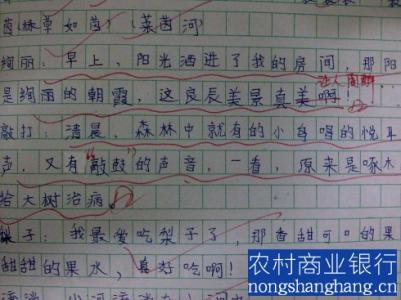 茵(绿草如茵)(莱茵河)
绚丽:早上,阳光洒进了我的房间,那阳
是绚丽的朝霞,这良辰美景真美啊!
让人陶醉
敲打:清晨,森林中就有的小鸟唱的悦耳
声,又有“敲鼓”的声音,一看,原来是啄木
给大树治病。
梨子:我最爱吃梨子了,那香甜可口的果
甜甜的果水,真好吃啊!
农村商业银行
nongshanghang.cn